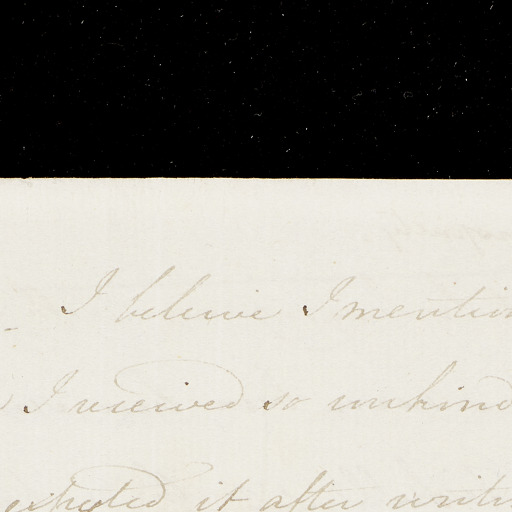 I believe I mention
I received so unkind
expected it after writi